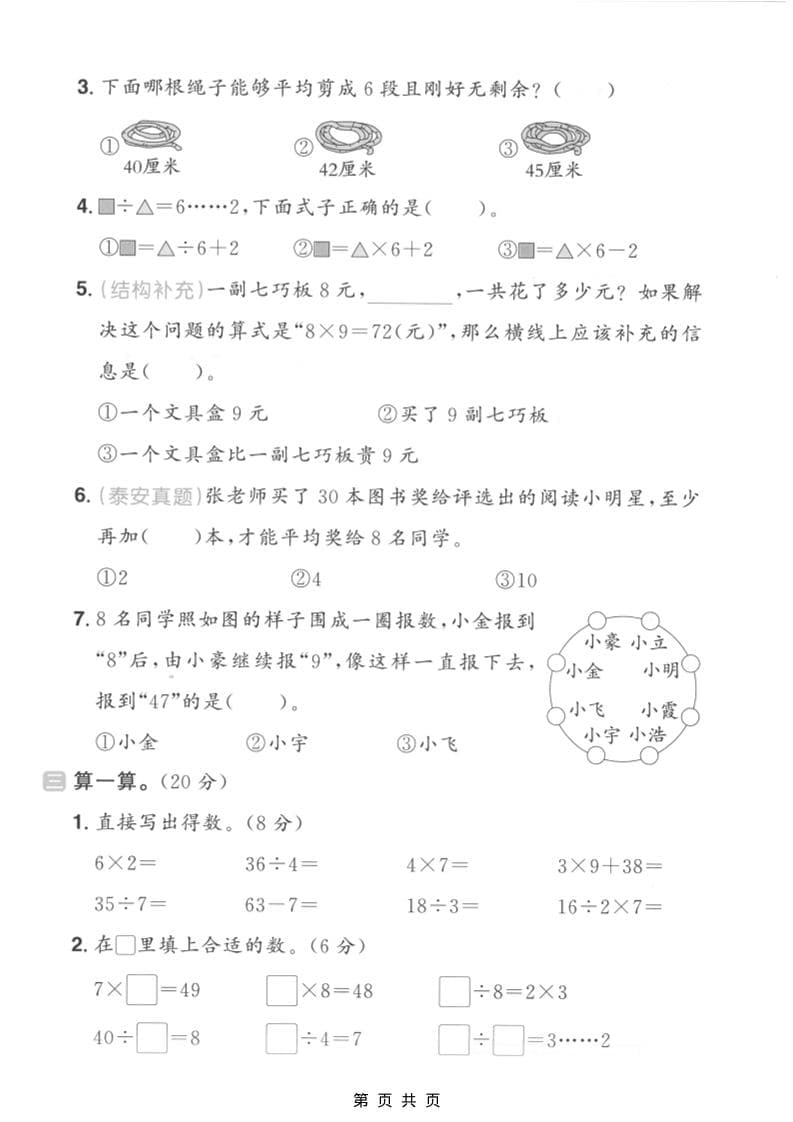 3. 下面哪根绳子能够平均剪成 6 段且刚好无剩余？（　　）
① 40厘米　② 42厘米　③ 45厘米
4. ■÷△＝6……2，下面式子正确的是（　　）。
①■＝△÷6＋2　②■＝△×6＋2　③■＝△×6－2
5. （结构补充）一副七巧板 8 元，________，一共花了多少元？如果解
决这个问题的算式是“8×9＝72（元）”，那么横线上应该补充的信
息是（　　）。
①一个文具盒 9 元　②买了 9 副七巧板
③一个文具盒比一副七巧板贵 9 元
6. （泰安真题）张老师买了 30 本图书奖给评选出的阅读小明星，至少
再加（　　）本，才能平均奖给 8 名同学。
①2　②4　③10
7. 8 名同学照如图的样子围成一圈报数，小金报到
“8”后，由小豪继续报“9”，像这样一直报下去，
报到“47”的是（　　）。
①小金　②小宇　③小飞
小豪 小立
小金　小明
小飞　小霞
小宇 小浩
三 算一算。（20 分）
1. 直接写出得数。（8 分）
6×2＝　36÷4＝　4×7＝　3×9＋38＝
35÷7＝　63－7＝　18÷3＝　16÷2×7＝
2. 在□里填上合适的数。（6 分）
7×□＝49　□×8＝48　□÷8＝2×3
40÷□＝8　□÷4＝7　□÷□＝3……2
第 页 共 页